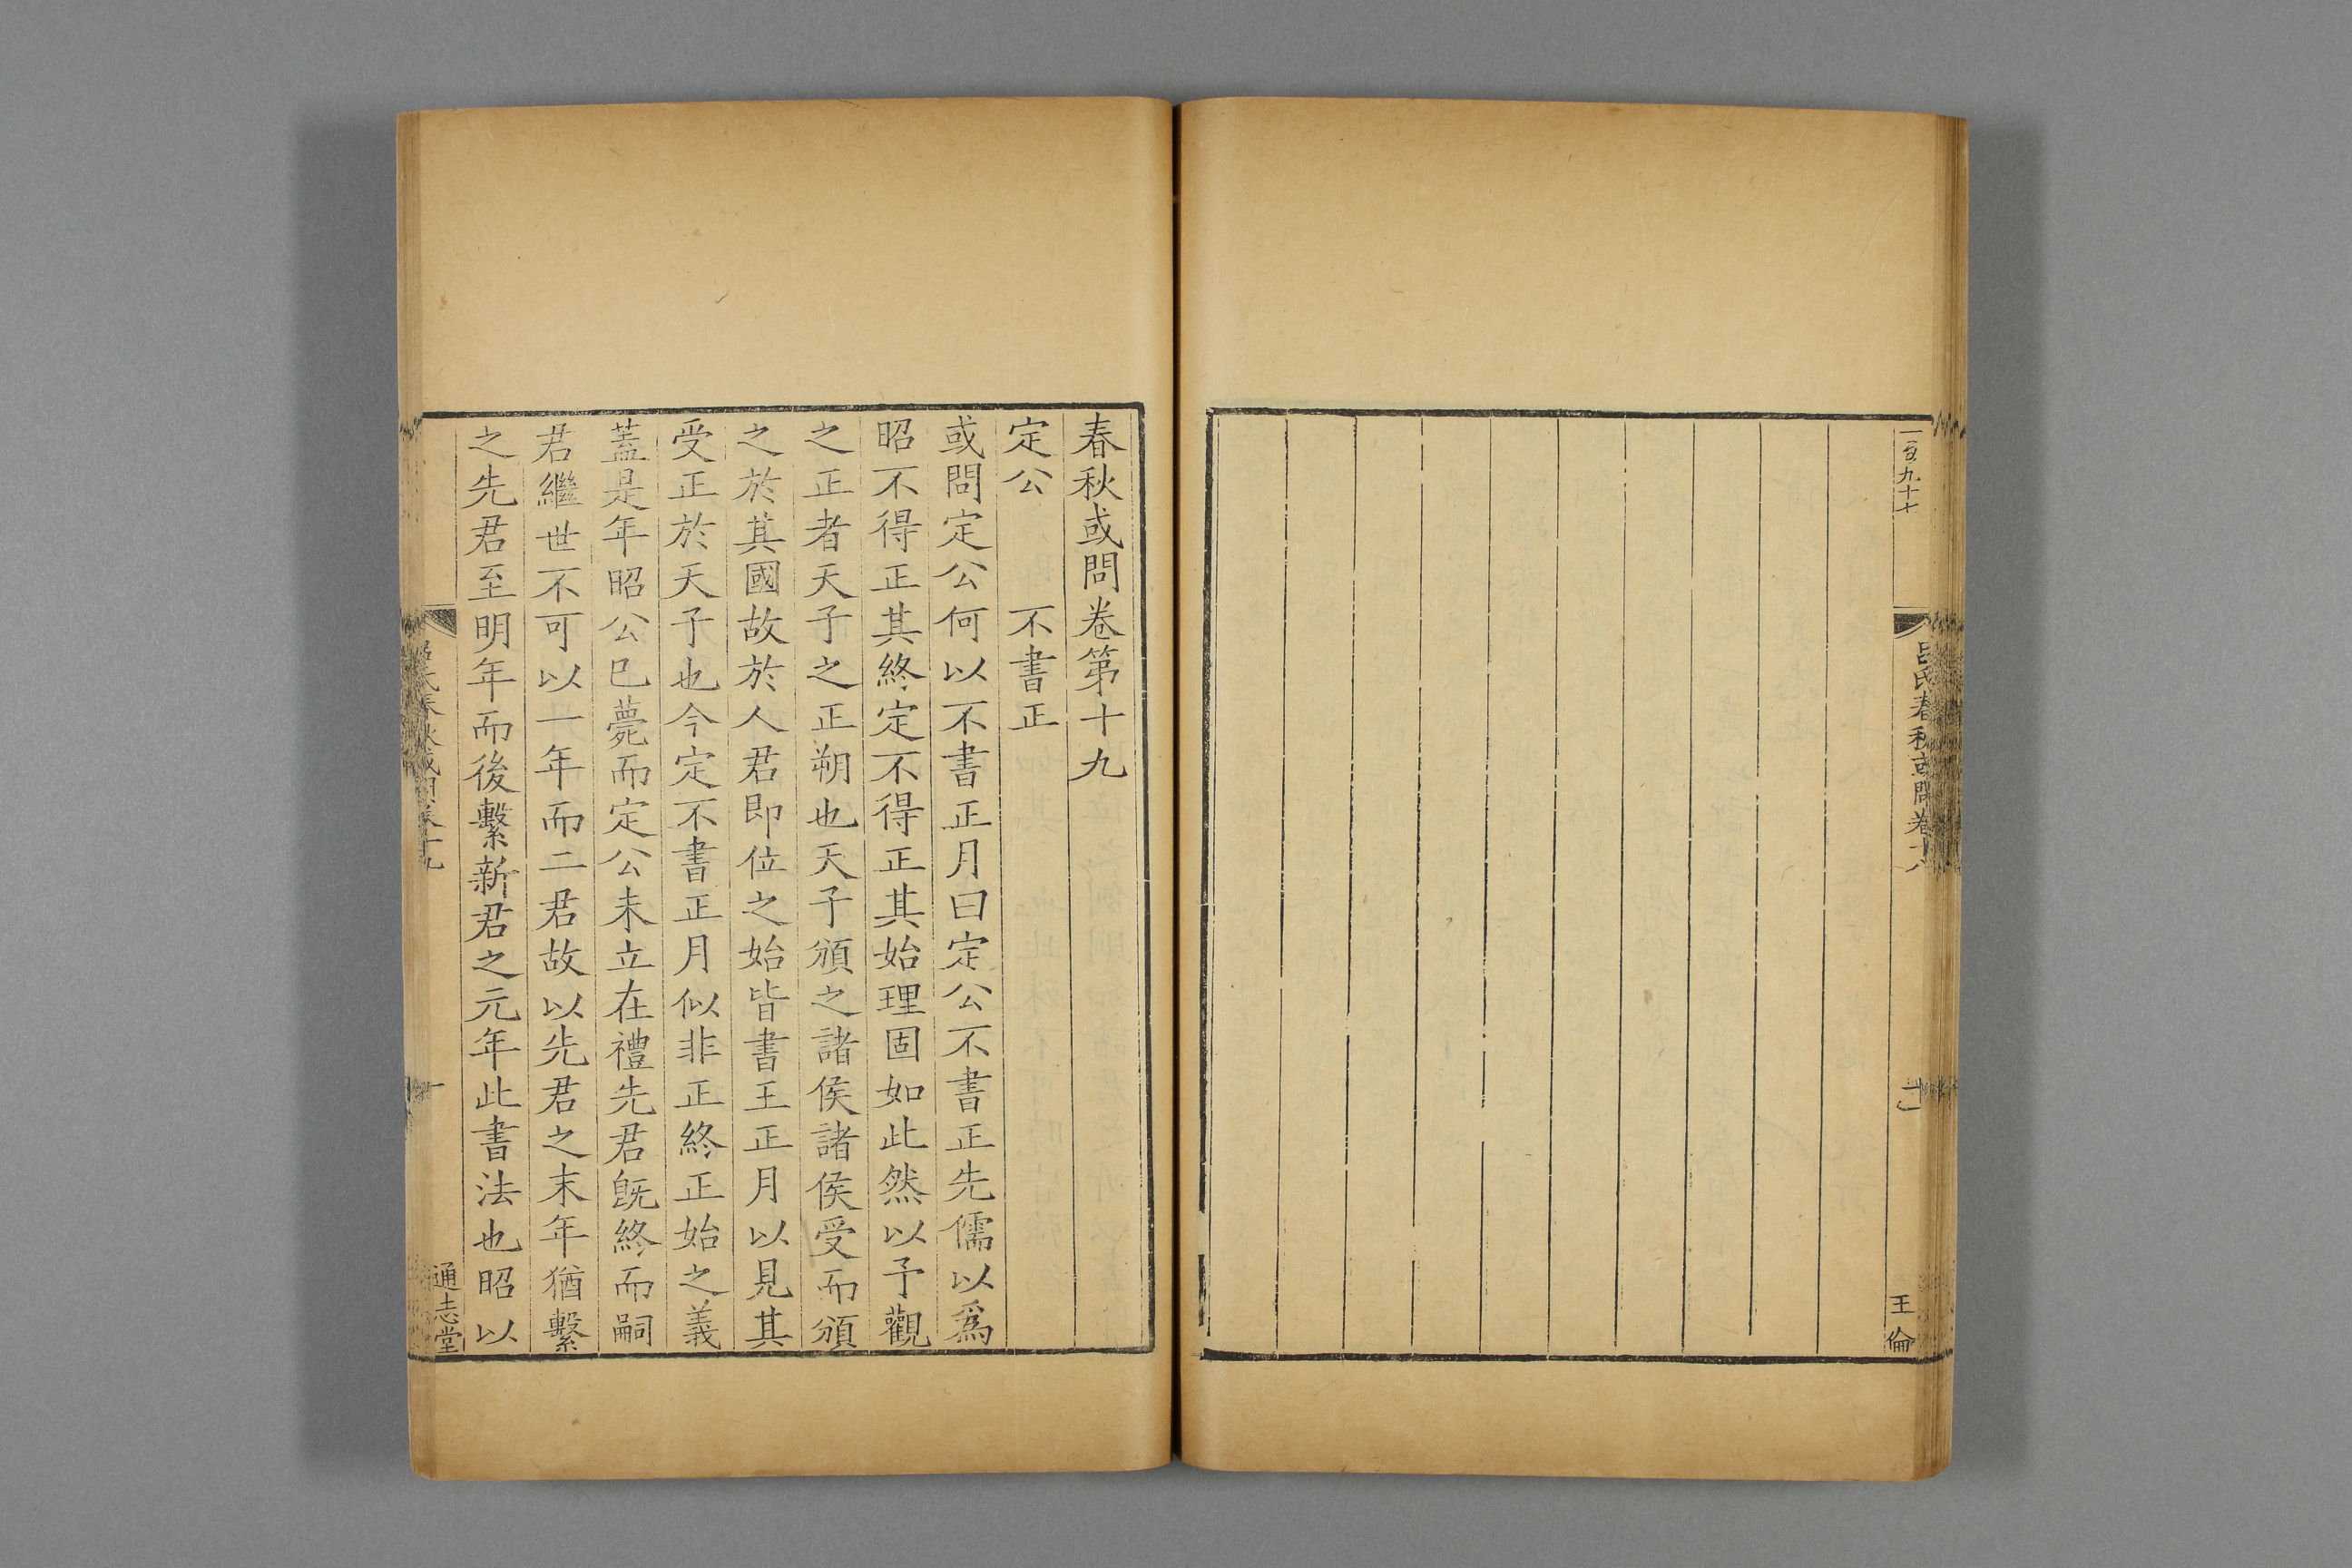 一百九十七
呂氏春秋或問卷十八
十一
王倫
春秋或問卷第十九
定公　不書正
或問定公何以不書正月曰定公不書正先儒以爲
昭不得正其終定不得正其始理固如此然以予觀
之正者天子之正朔也天子頒之諸侯諸侯受而頒
之於其國故於人君即位之始皆書王正月以見其
受正於天子也今定不書正月似非正終正始之義
蓋是年昭公已薨而定公未立在禮先君旣終而嗣
君繼世不可以一年而二君故以先君之末年猶繫
之先君至明年而後繫新君之元年此書法也昭以
呂氏春秋或問卷十九
一
通志堂